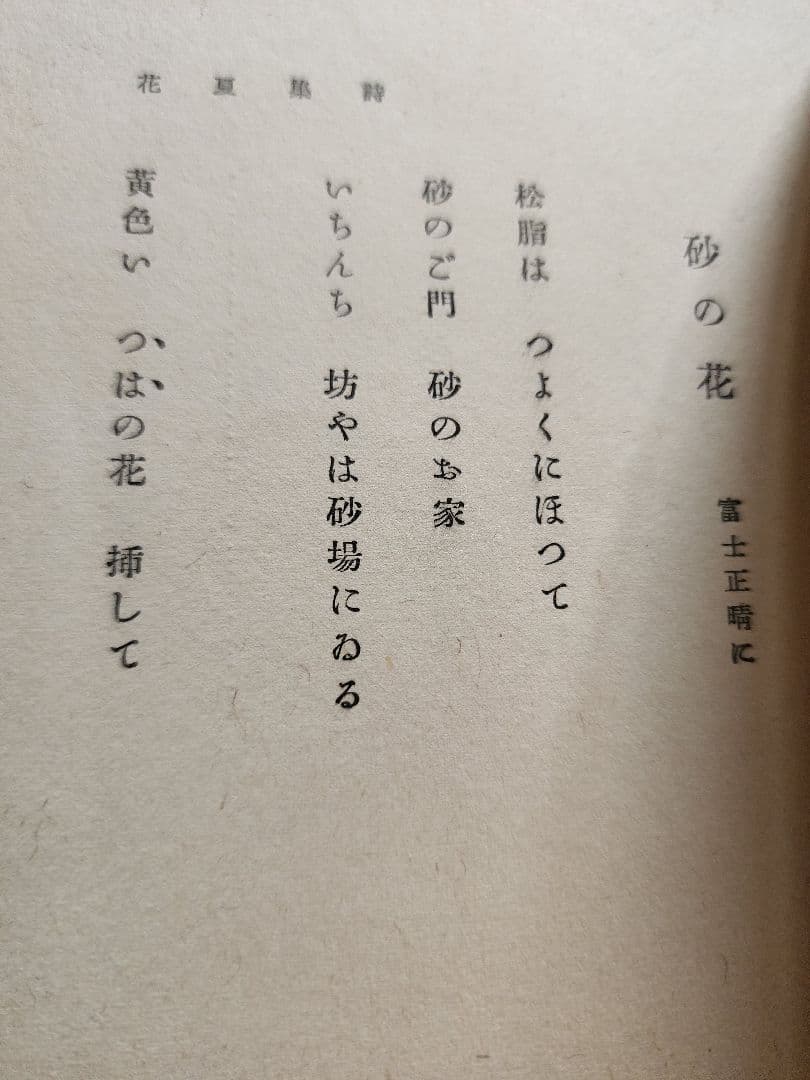 詩集夏花
砂の花
富士正晴に
松脂は　つよくにほつて
砂のご門　砂のお家
いちんち　坊やは砂場にゐる
黄色い　つはの花　挿して